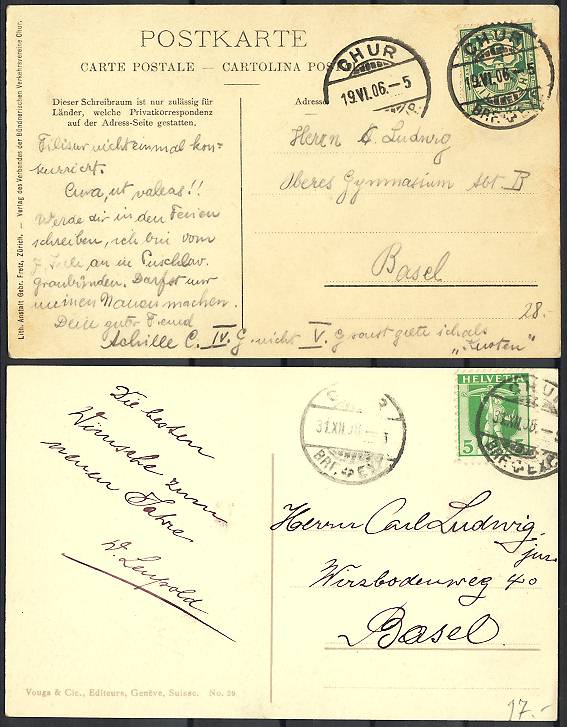 POSTKARTE
CARTE POSTALE — CARTOLINA POS
Dieser Schreibraum ist nur zulässig für
Länder, welche Privatkorrespondenz
auf der Adress-Seite gestatten.
Adresse
CHUR
19.VI.06.—5
CHUR
19.VI.06.
BRF.EXP.
Filisur nicht einmal kon-
kurriert.
Cura, ut valeas!!
Werde dir in den Ferien
schreiben, ich bin vom
7. Juli an in Puschlav.
graubünden. Darfst nur
meinen Namen machen.
Dein guter Freund
Achille C. IV. G. nicht V. G sonst gelte ich als
Herrn C. Ludwig
Oberes Gymnasium Abt. B
Basel
28.-
Lith. Anstalt Gebr. Fretz, Zürich. — Verlag des Verbandes der Bündnerischen Verkehrsvereine Chur.
HELVETIA
5
CHUR
31.XII.
BRF.EXP.
CHUR
31.XII.08.—
BRF.EXP.
Die besten
Wünsche zum
neuen Jahre
W. Leupold
Herrn Carl Ludwig,
jun.
Wirzbodenweg 40
Basel.
Vouga & Cie., Editeurs, Genève, Suisse. No. 29
17.-